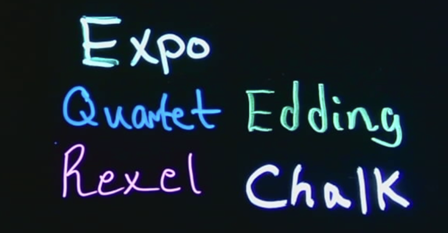 Expo
Quartet Edding
Rexel Chalk